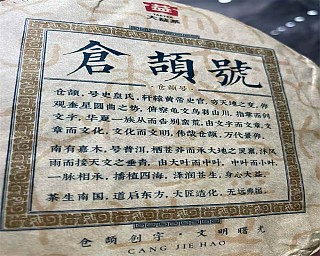 益
大益茶
倉頡號
·仓颉号·
仓颉，号史皇氏，轩辕黄帝史官，穷天地之变，仰
观奎星圆曲之势，俯察龟文鸟羽山川，指掌而创
文字，华夏一族从而告别蛮荒，由文字而文章，文
章而文化，文化而文明，伟哉仓颉，万代景仰。
南有嘉木，号普洱，栖苍莽而承天地之灵禀，沐风
雨而接天文之垂青，由大叶而中叶，中叶而小叶，
一脉相承，播植四海，泽润苍生，身心大益。
茶生南国，道启东方，大匠造化，无远弗届。
仓颉创字 文明曙光
CANG JIE HAO